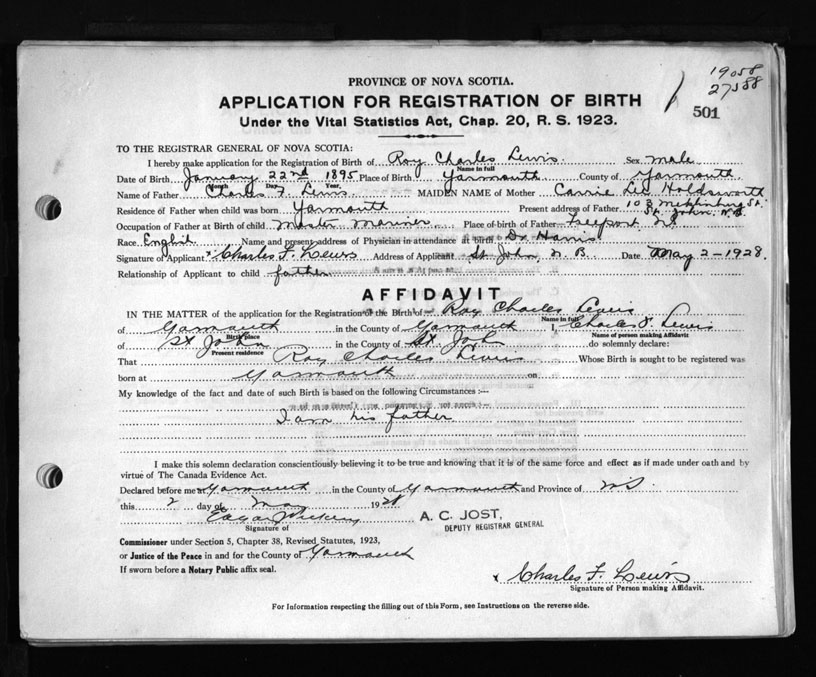 19058
27588
501
PROVINCE OF NOVA SCOTIA.
APPLICATION FOR REGISTRATION OF BIRTH
Under the Vital Statistics Act, Chap. 20, R. S. 1923.
TO THE REGISTRAR GENERAL OF NOVA SCOTIA:
I hereby make application for the Registration of Birth of Roy Charles Lewis. Sex male
Name in full
Date of Birth January 22nd 1895 Place of Birth Yarmouth County of Yarmouth
Month Day Year,
Name of Father Charles F. Lewis MAIDEN NAME of Mother Carrie Holdsworth
Residence of Father when child was born Yarmouth Present address of Father 103 St. St. John, N.B.
Occupation of Father at Birth of child Master Mariner Place of birth of Father Freeport NS
Race English Name and present address of Physician in attendance at birth Dr Harris
Signature of Applicant x Charles F. Lewis Address of Applicant St. John, N.B. Date May 2-1928.
Relationship of Applicant to child father
AFFIDAVIT
IN THE MATTER of the application for the Registration of the Birth of Roy Charles Lewis
Name in full
of Yarmouth in the County of Yarmouth I, Charles F. Lewis
Birth place Name of person making Affidavit
of St John in the County of St John do solemnly declare:
Present residence
That Roy Charles Lewis Whose Birth is sought to be registered was
born at Yarmouth on
My knowledge of the fact and date of such Birth is based on the following Circumstances :—
I am his father
I make this solemn declaration conscientiously believing it to be true and knowing that it is of the same force and effect as if made under oath and by
virtue of The Canada Evidence Act.
Declared before me at Yarmouth in the County of Yarmouth and Province of NS.
this 2 day of May 1928
Signature of
A. C. JOST,
DEPUTY REGISTRAR GENERAL
Commissioner under Section 5, Chapter 38, Revised Statutes, 1923,
or Justice of the Peace in and for the County of Yarmouth
If sworn before a Notary Public affix seal.
x Charles F. Lewis
Signature of Person making Affidavit.
For Information respecting the filling out of this Form, see Instructions on the reverse side.